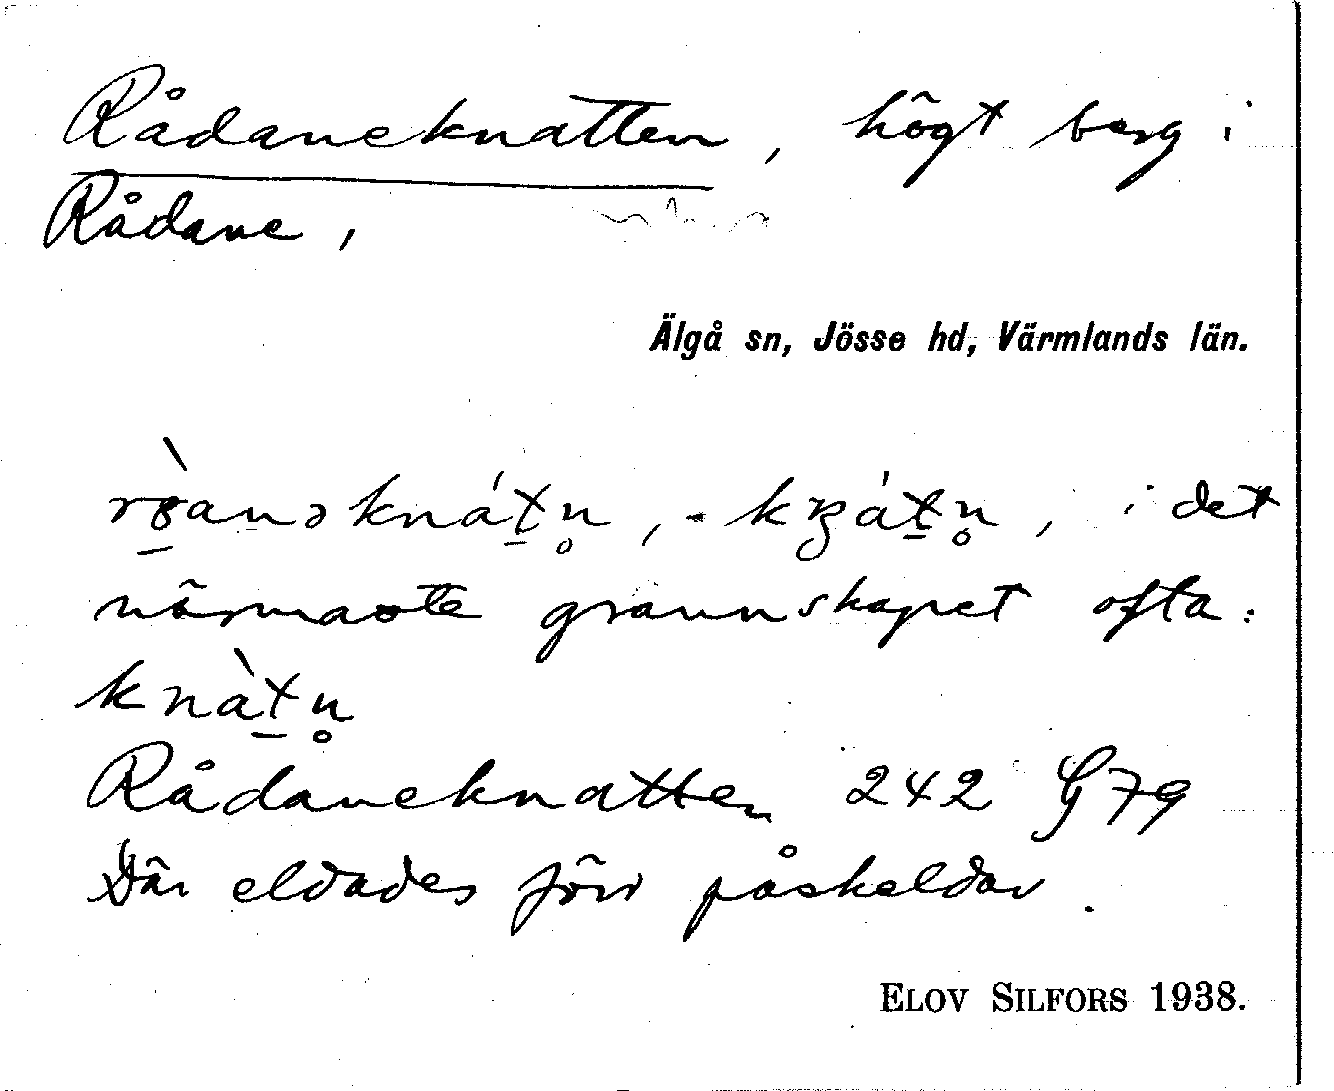 Rådaneknatten, högt berg i
Rådane,
Älgå sn, Jösse hd, Värmlands län.
i det
närmaste grannskapet ofta:
Rådaneknatten 242 G79
Där eldades förr påskeldar.
ELOV SILFORS 1938.